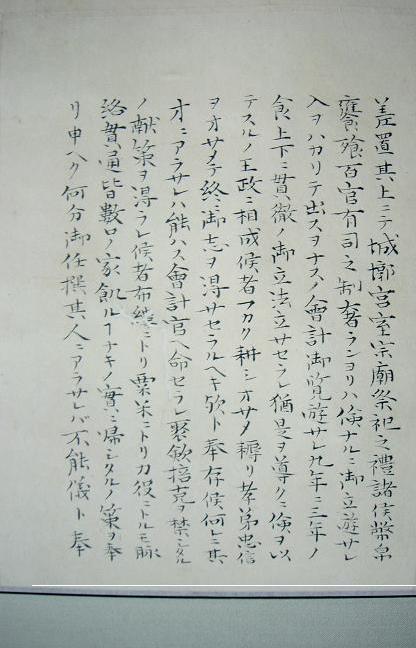 差置其上ニテ城郭宮室宗廟祭祀之禮諸侯幣帛
饔飧百官有司之制奢ランヨリハ倹ナルニ御立遊サレ
入ヲハカリテ出スヲナスノ會計御覽遊サレ九年ニ三年ノ
食上下ニ貫徹ノ御立法立サセラレ猶是ヲ導クニ倹ヲ以
テスルノ王政ニ相成候者フカク耕シオサメ耨リ孝弟忠信
ヲオサメテ終ニ御志ヲ得サセラルヘキ歟ト奉存候何レニ其
才ニアラサレハ能ハス會計官ヘ命セラレ聚斂掊克ヲ禁シタル
ノ献策ヲ得ラレ候者布縷ニトリ粟米ニトリ力役ニトルモ脈
絡貫通皆數口ノ家飢ルヿナキノ實ニ帰シタルノ策ヲ奉
リ申ヘク何分御任撰其人ニアラサレバ不能儀ト奉